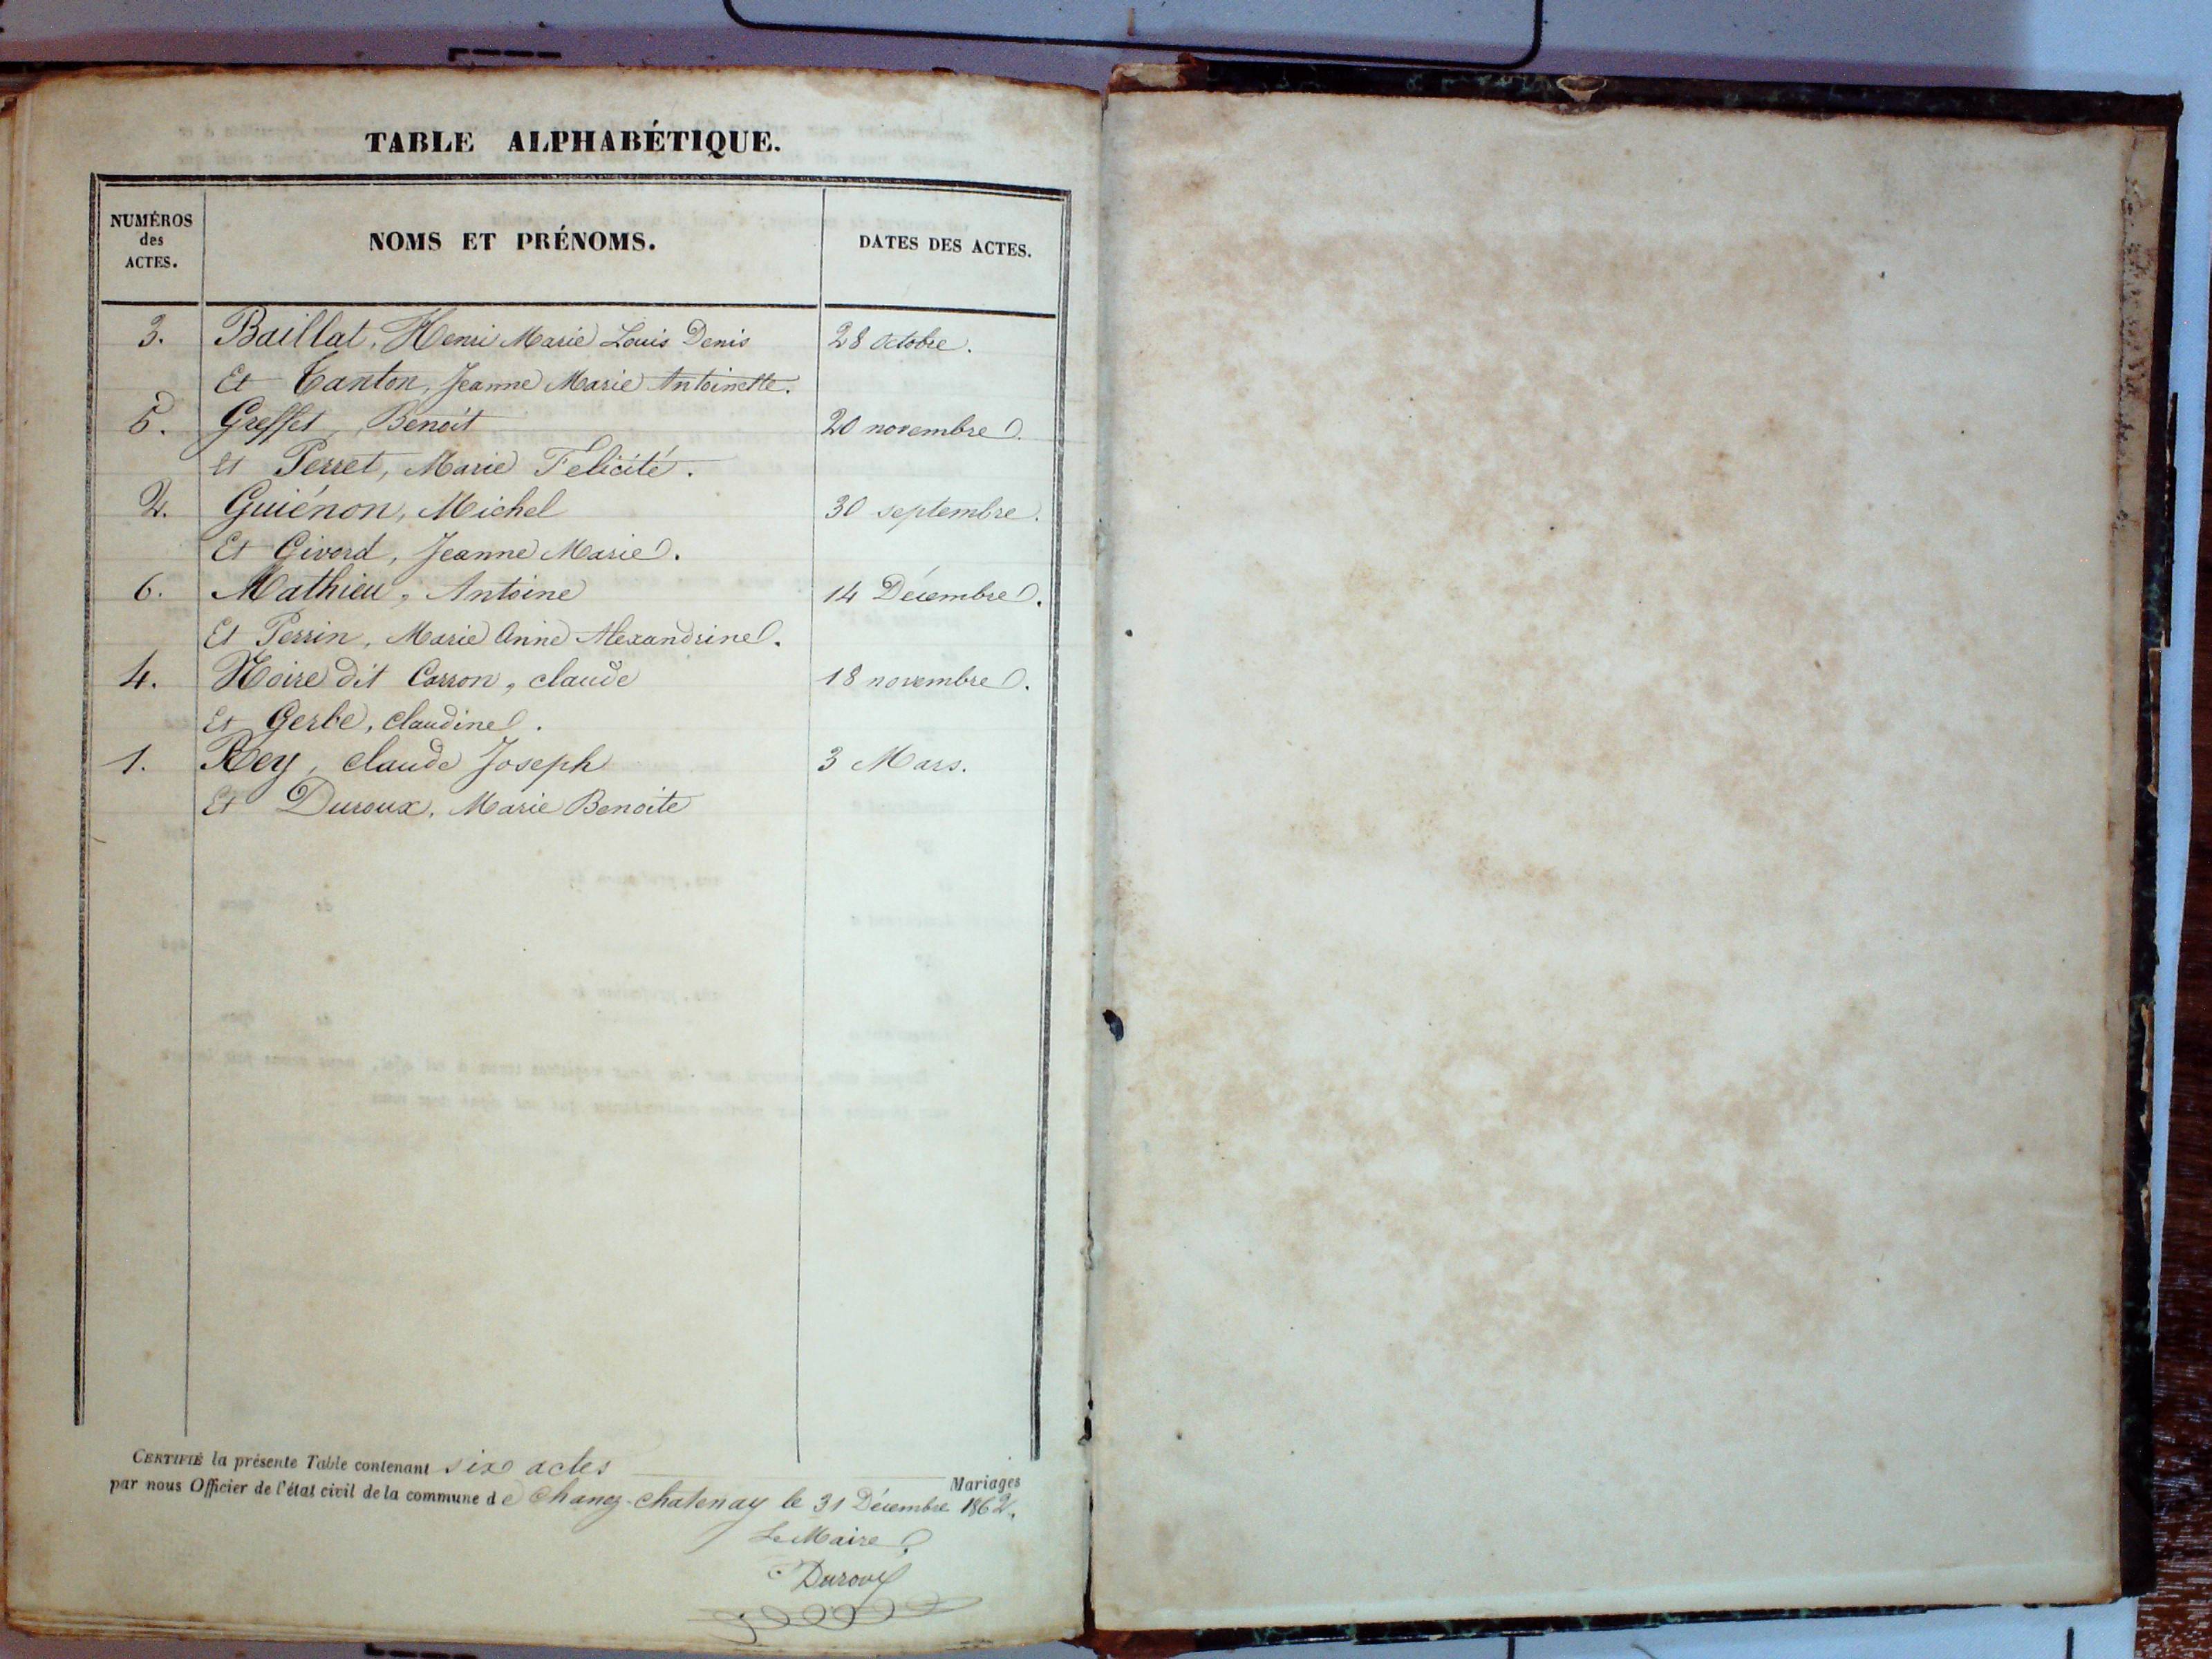 TABLE ALPHABÉTIQUE.
NUMÉROS
des
ACTES.
NOMS ET PRÉNOMS.
DATES DES ACTES.
3. Baillat, Henri Marie Louis Denis 28 octobre.
Et Canton, Jeanne Marie Antoinette.
5. Greffet, Benoit 20 novembre.
et Perret, Marie Félicité.
2. Guiénon, Michel 30 septembre.
Et Givord, Jeanne Marie.
6. Mathieu, Antoine 14 Décembre.
Et Perrin, Marie Anne Alexandrine.
4. Noire dit Carron, claude 18 novembre.
Et Gerbe, Claudine.
1. Rey, claude Joseph 3 Mars.
Et Duroux, Marie Benoite
CERTIFIÉ la présente Table contenant six actes Mariages
par nous Officier de l'état civil de la commune de Chanoz-Chatenay le 31 Décembre 1862.
Le Maire,
Duroux